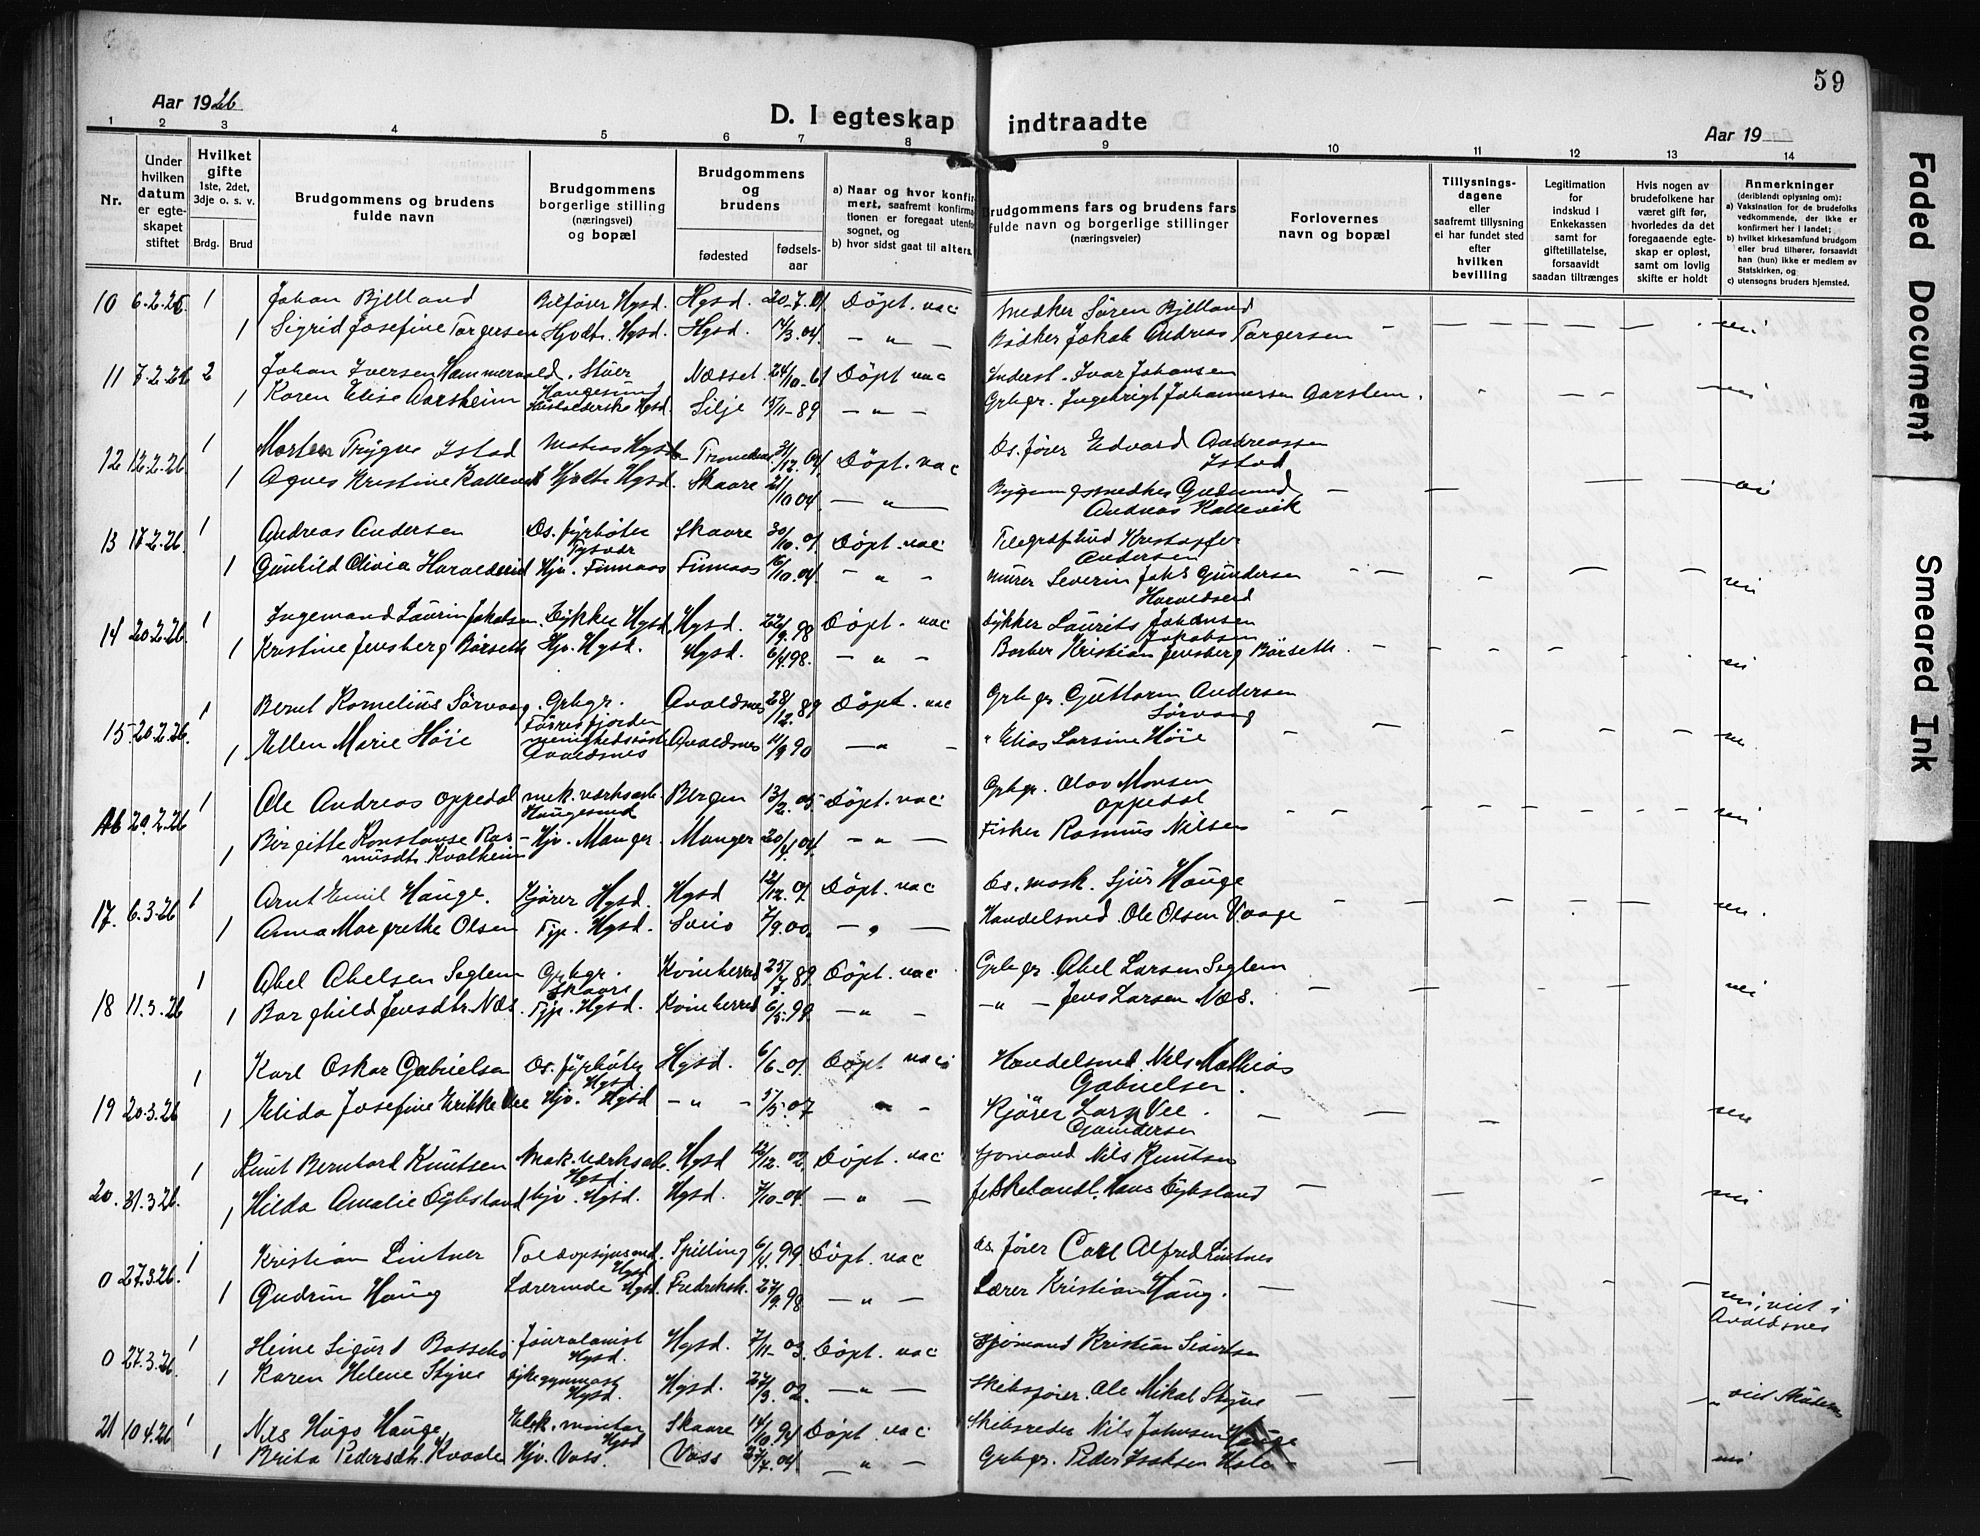 59
Aar 1926
D. I egteskap indtraadte
Aar 19
1 2 3 4 5 6 7 8 9 10 11 12 13 14
Nr.
Under hvilken datum er egteskapet stiftet
Hvilket gifte 1ste, 2det, 3dje o. s. v.
Brdg. Brud
Brudgommens og brudens fulde navn
Brudgommens borgerlige stilling (næringsvei) og bopæl
Brudgommens og brudens
fødested fødselsaar
a) Naar og hvor konfirmert, saafremt konfirmationen er foregaat utenfor sognet, og
b) hvor sidst gaat til alters.
Brudgommens fars og brudens fars fulde navn og borgerlige stillinger (næringsveier)
Forlovernes navn og bopæl
Tillysningsdagene eller saafremt tillysning ei har fundet sted efter hvilken bevilling
Legitimation for indskud i Enkekassen samt for giftetillatelse, forsaavidt saadan tiltrænges
Hvis nogen av brudefolkene har været gift før, hvorledes da det foregaaende egteskap er opløst, samt om lovlig skifte er holdt
Anmerkninger (deriblandt oplysning om):
a) Vaksination for de brudefolks vedkommende, der ikke er konfirmert her i landet;
b) hvilket kirkesamfund brudgom eller brud tilhører, forsaavidt han (hun) ikke er medlem av Statskirken, og
c) utensogns bruders hjemsted.
10 6.2.26. 1 Johan Bjelland Bilfører Hgsd. Hgsd. 20.7.01. Döpt. vac Smedker Sören Bjelland
1 Sigrid Josefine Torgersen Hjvdtr. Hgsd. Hgsd. 14/3.04. — " — Bödker Jakob Andreas Torgersen — nei
11 7.2.26 2 Johan Iversen Hammervold. Stuer Haugesund Næsset 24/10-61 Döpt vac Inderst. Ivar Johansen
1 Karen Elise Aarsheim Husholderske Hgsd. Silje 15/11-89 — " — Grbgr. Ingebrigt Johannessen Aarsheim. nei
12 12.2.26 1 Morten Trygve Istad Matros Hgsd 31/12.04. Döpt. vac Ds. förer Edvard Andreassen Istad
1 Agnes Kristine Kallevik Hjvdtr Hgsd. Skaare 21/10 04 — " — Bygningssnedker Gudmund Andreas Kallevik — nei
13 17.2.26. 1 Andreas Andersen Ds. fyrböter Tysvær Skaare 30/10.01. Döpt. vac Telegrafbud Kristoffer Andersen
1 Gunhild Olivia Haraldseid Hjv. Finnaas Finnaas 16/10.04. — " — murer Severin Johs Gundersen Haraldseid nei
14 20.2.26. 1 Ingemand Laurin Jakobsen. Dykker Hgsd. Hgsd. 22/9.98 Döpt. vac Dykker Laurits Johansen Jakobsen
1 Kristine Jensberg Börseth Hjv. Hgsd. Hgsd. 6/4.98. — " — Barber Kristian Jensberg Börseth. — nei
15 20.2.26. 1 Bernt Kornelius Sörvaag. Grbgr. Förresfjorden Avaldsnes 28/12.89 Döpt. vac Grbgr. Guttorm Andersen Sörvaag
1 Ellen Marie Höie menighedssöster Avaldsnes Avaldsnes 11/9 90 — " — " Elias Larsine Höie nei
16 20.2.26 1 Ole Andreas Oppedal mek. værksarb. Haugesund Bergen 13/2.05 Döpt. vac Grbgr. Olav Monsen Oppedal
1 Birgitte Konstanse Rasmusdtr. Kvalheim Hjv. Manger. Manger 20/4.04. — " — Fisker Rasmus Nilsen — nei
17. 6.3.26 1 Arnt Emil Hauge. Kjörer Hgsd. Hgsd 12/12.01. Döpt. vac Ds. mask. Sjur Hauge
1 Anna Margrethe Olsen Tjp. Hgsd. Sveio 7/9.00. — " — Handelsmd. Ole Olsen Vaage nei.
18 11.3.26 1 Abel Abelsen Seglem Grbgr. Skaare Kvinherred 25/7.89 Döpt. vac Grbgr. Abel Larsen Seglem
1 Borghild Jensdtr. Næs. Tjp. Hgsd. Kvinherred 6/5.99. — " — — " — Jens Larsen Næs. nei
19 20.3.26 1 Karl Oskar Gabrielsen Ds. fyrböter Hgsd. Hgsd. 6/6-01. Döpt vac Handelsmd. Nils Mathias Gabrielsen.
1 Elida Josefine Erikke Vee Hjv. Hgsd — " — 5/5.07 " — Kjörer Lars Vee. Gundersen nei
20. 31.3.26. 1 Knut Bernhard Knutsen Mek. værksarb. Hgsd. Hgsd 12/12.02. Döpt. vac Sjömand Nils Knutsen
1 Hilda Amalie Dybsland Hjv. Hgsd. Hgsd. 7/10-04. — " — Fiskehandl. Hans Dybsland — nei
0 27.3.26. 1 Kristian Lintner Toldopsynsmd. Hgsd Spilling 6/4.99. Döpt. vac Ds. förer Carl Alfred Lintner
1 Gudrun Haug Lærerinde Hgsd. Fredrikst. 24/9.98 — " — Lærer Kristian Haug. — nei, viet i Avaldsnes
0 27.3.26. 1 Heine Sigurd Journalist Hgsd. Hgsd. 7/11-03. Döpt. vac Sjömand Kristian Sivertsen
1 Karen Helene Styve Hgsd. Hgsd. 27/3.02. — " — Skibsförer. Ole Mikal Styve — " viet
21 10.4.26 1 Nils Hugo Hauge. Elek. montör Hgsd Skaare 14/10.94 Döpt. vac Skibsreder Nils Johnsen Hauge
1 Brita Pedersdtr. Kvaale Hjv. Voss. Voss 27/7.04 — " — Grbgr. Peder Isaksen — nei
Faded Document
Smeared Ink